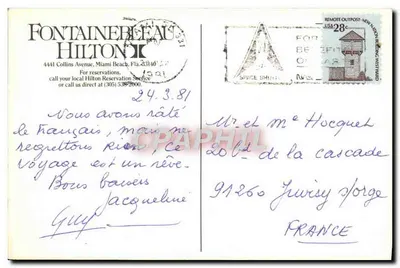 FONTAINEBLEAU
HILTON
4441 Collins Avenue, Miami Beach, Fla.
For reservations,
call your local Hilton Reservation Service
or call us direct at (305) 538-2000.
24.3.81
Nous avons râté
le français, mais ne
regrettons rien, ce
voyage est un rêve.
Bons baisers
Jacqueline
Guy
REMOTE OUTPOST
USA 28c
1981
FOR
Mr et Me Hocquet
20 bd de la cascade
91260 Juvisy s/orge
FRANCE
CPAPHIL